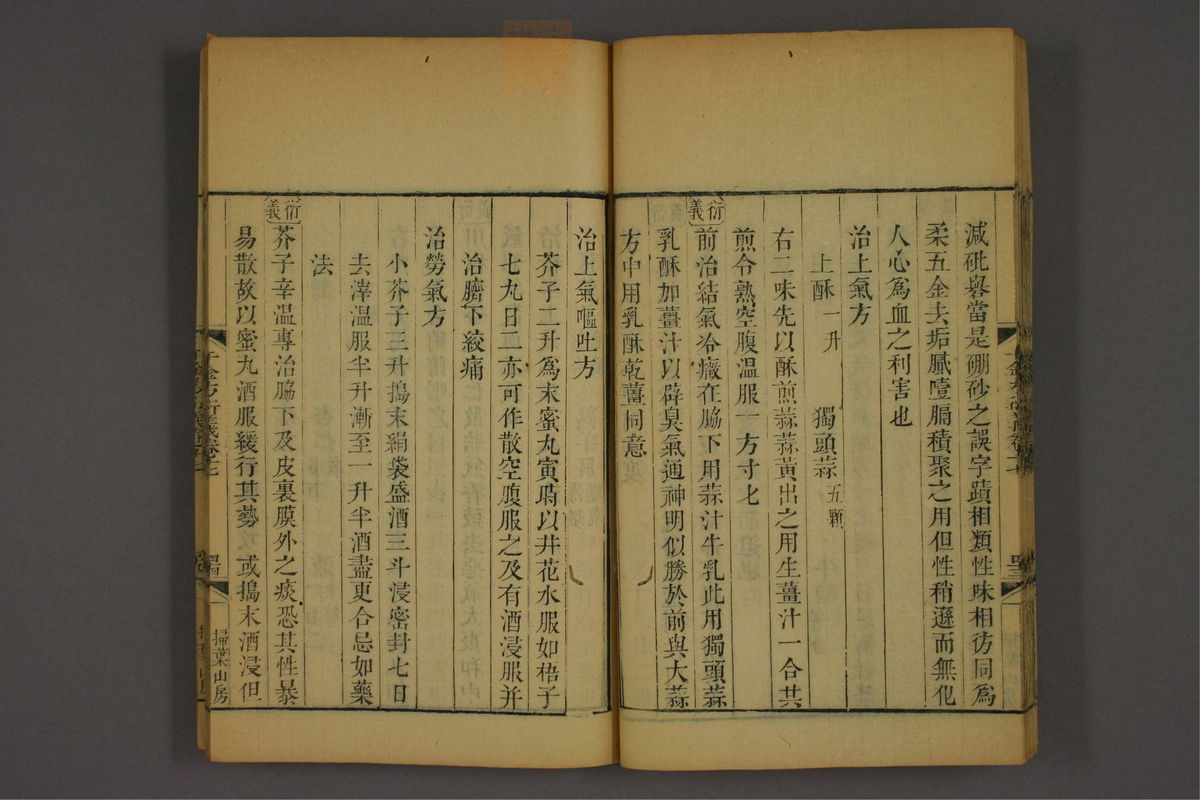 減砒礜當是硼砂之誤字蹟相類性味相彷同爲
柔五金去垢膩噎膈積聚之用但性稍遜而無化
人心爲血之利害也
治上氣方
上酥一升 獨頭蒜五顆
右二味先以酥煎蒜蒜黃出之用生薑汁一合共
煎令熟空腹溫服一方寸匕
衍義
前治結氣冷癥在脇下用蒜汁牛乳此用獨頭蒜
乳酥加薑汁以辟臭氣通神明似勝於前與大蒜
方中用乳酥乾薑同意
治上氣嘔吐方
芥子二升爲末蜜丸寅時以井花水服如梧子
七丸日二亦可作散空腹服之及有酒浸服并
治臍下絞痛
治勞氣方
小芥子三升搗末絹袋盛酒三斗浸密封七日
去滓溫服半升漸至一升半酒盡更合忌如藥
法
衍義
芥子辛溫專治脇下及皮裏膜外之痰恐其性暴
易散故以蜜丸酒服緩行其勢 或搗末酒浸但
掃葉山房